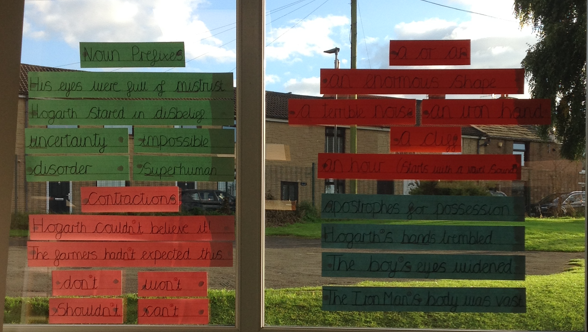 Noun Prefixes
His eyes were full of mistrust
Hogarth stared in disbelief
uncertainty impossible
disorder Superhuman
Contractions
Hogarth couldn't believe it
the farmers hadn't expected this
don't won't
shouldn't can't
a or an
an enormous shape
a terrible noise an iron hand
a cliff
an hour (starts with a vowel sound)
Apostrophes for Possession
Hogarth's hands trembled
The boy's eyes widened
The Iron Man's body was vast